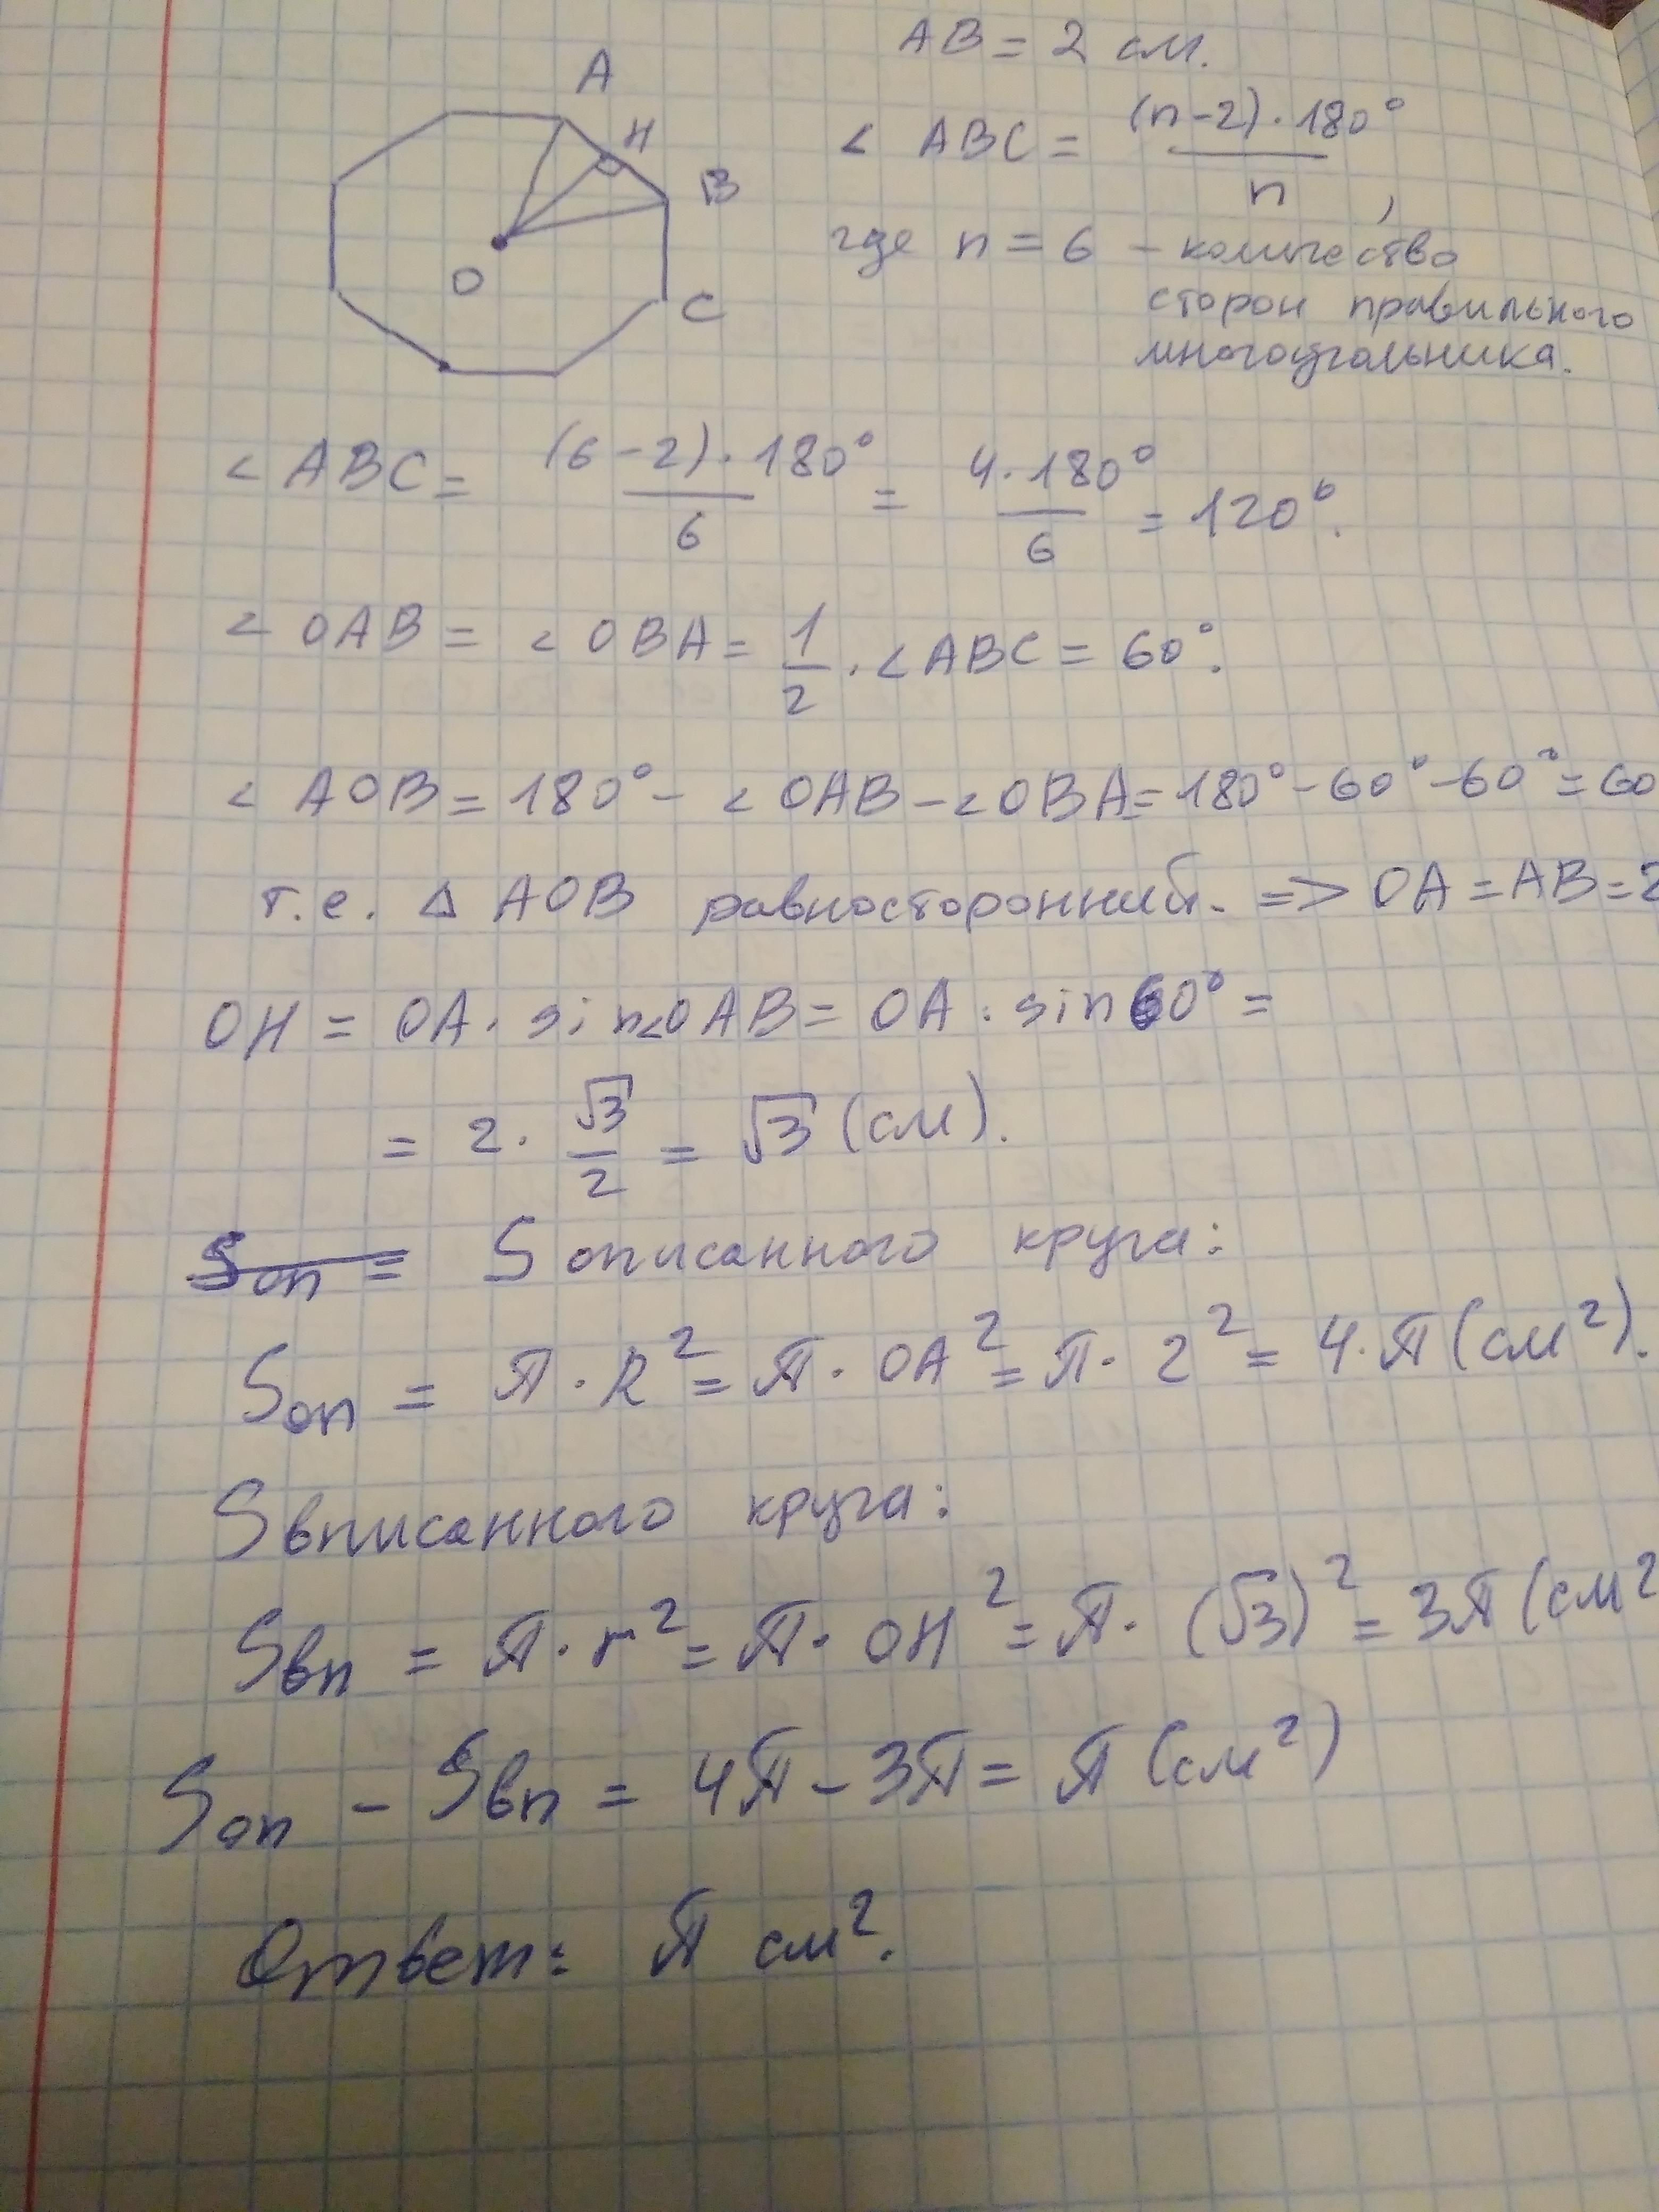 A
H
B
O
C
AB = 2 см.
< ABC = (n-2)·180° / n ,
где n = 6 – количество
сторон правильного
многоугольника.
< ABC = (6-2)·180° / 6 = 4·180° / 6 = 120°.
< OAB = < OBA = 1/2 · < ABC = 60°.
< AOB = 180° - < OAB - < OBA = 180° - 60° - 60° = 60
т.е. Δ AOB равносторонний. => OA = AB = 2
OH = OA · sin<OAB = OA · sin60° =
= 2 · √3/2 = √3 (см).
Sоп = S описанного круга:
Sоп = π · R² = π · OA² = π · 2² = 4·π (см²).
Sвписанного круга:
Sвп = π · r² = π · OH² = π · (√3)² = 3π (см²
Sоп - Sвп = 4π - 3π = π (см²)
Ответ: π см².